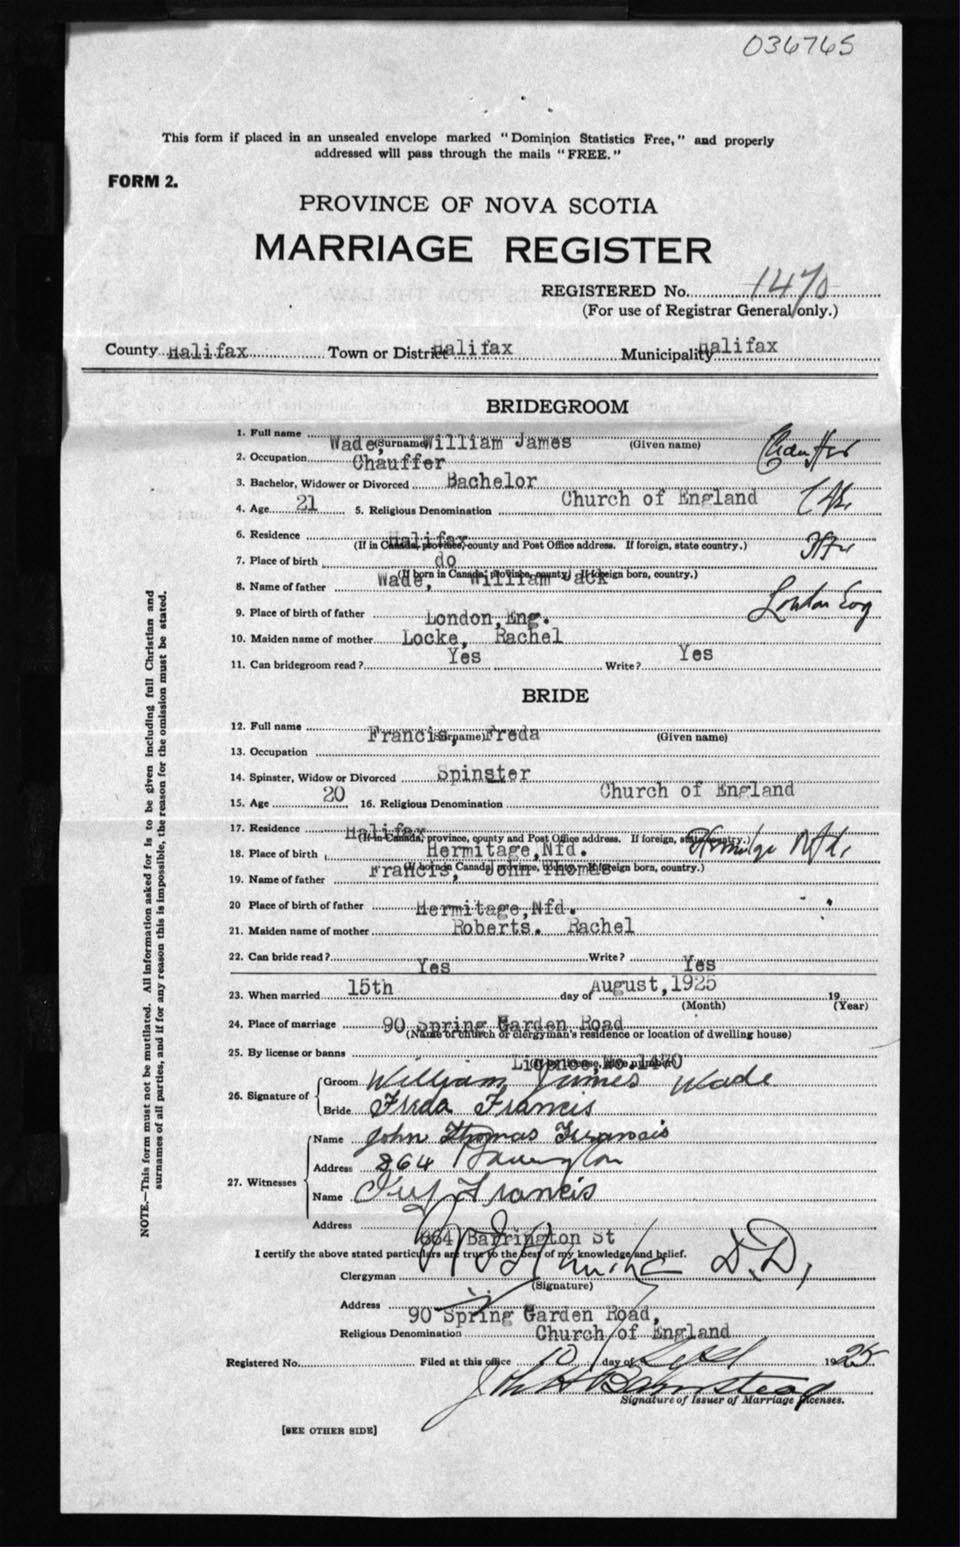 036765
This form if placed in an unsealed envelope marked "Dominion Statistics Free," and properly
addressed will pass through the mails "FREE."
FORM 2.
PROVINCE OF NOVA SCOTIA
MARRIAGE REGISTER
REGISTERED No. 1470
(For use of Registrar General only.)
County Halifax Town or District Halifax Municipality Halifax
BRIDEGROOM
1. Full name Wade, William James (Surname) (Given name)
2. Occupation Chauffer
3. Bachelor, Widower or Divorced Bachelor
4. Age 21 5. Religious Denomination Church of England
6. Residence Halifax
(If in Canada, province, county and Post Office address. If foreign, state country.)
7. Place of birth do
(If born in Canada, province, county. If foreign born, country.)
8. Name of father Wade, William Jack
9. Place of birth of father London, Eng. London Eng
10. Maiden name of mother Locke, Rachel
11. Can bridegroom read? Yes Write? Yes
BRIDE
12. Full name Francis, Freda (Surname) (Given name)
13. Occupation
14. Spinster, Widow or Divorced Spinster
15. Age 20 16. Religious Denomination Church of England
17. Residence Halifax
(If in Canada, province, county and Post Office address. If foreign, state country.)
18. Place of birth Hermitage, Nfd. Hermitage Nfd.
(If born in Canada, province, county. If foreign born, country.)
19. Name of father Francis, John Thomas
20 Place of birth of father Hermitage, Nfd.
21. Maiden name of mother Roberts. Rachel
22. Can bride read? Yes Write? Yes
23. When married 15th day of August, 1925 19
(Month) (Year)
24. Place of marriage 90 Spring Garden Road
(Name of church or clergyman's residence or location of dwelling house)
25. By license or banns Licence, No. 1470
26. Signature of Groom William James Wade
Bride Freda Francis
27. Witnesses Name John Thomas Francis
Address 264 Barrington
Name Ivy Francis
Address 664 Barrington St
I certify the above stated particulars are true to the best of my knowledge and belief.
Clergyman D.D.
(Signature)
Address 90 Spring Garden Road,
Religious Denomination Church of England
Registered No. Filed at this office 10 day of Sept 1925
Signature of Issuer of Marriage Licenses.
[SEE OTHER SIDE]
NOTE.—This form must not be mutilated. All information asked for is to be given including full Christian and
surnames of all parties, and if for any reason this is impossible, the reason for the omission must be stated.